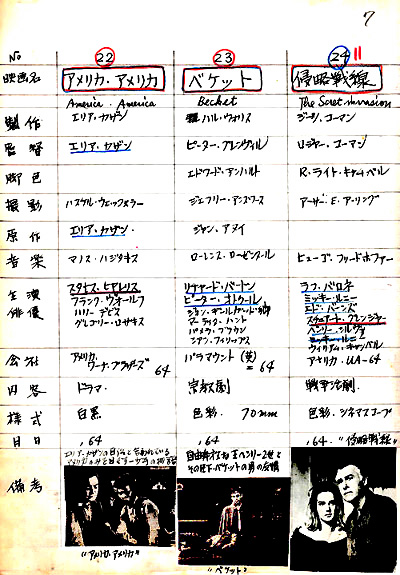 7
No 22 23 24 11
映画名 アメリカ・アメリカ ベケット 侵略戦線
America・America Becket The Secret invasion
製作 エリア・カザン ハル・ウォリス ジーン・コーマン
監督 エリア・カザン ピーター・グレンヴィル ロジャー・コーマン
脚色 エドワード・アンハルト R・ライト・キャムベル
撮影 ハスケル・ウェックスラー ジェフリー・アンスワース アーサー・E・アーリング
原作 エリア・カザン ジャン・アヌイ
音楽 マノス・ハジダキス ローレンス・ローゼンソール ヒューゴ・フリードホファー
主演 スタチス・ヒアレリス リチャード・バートン ラフ・バロネ
俳優 フランク・ウォールフ ピーター・オトゥール ミッキー・ルニー
ハリー・デビス エド・バーンズ
グレゴリー・ロザキス マーティタ・ハント スチュアート・グレンジャー
パメラ・ブラウン ヘンリー・シルヴァ
シアン・フィリップス ミッキー・ルニー
ウィリアム・キャンベル
会社 アメリカ、ワーナーブラザーズ 64 パラマウント(英) 64 アメリカ・UA-64
内容 ドラマ 宮廷劇 戦争活劇
様式 白黒 色彩・70mm 色彩・シネマスコープ
月日 , 64 , 64 , 64. "侵略戦線"
備考
"アメリカ、アメリカ" "ベケット"